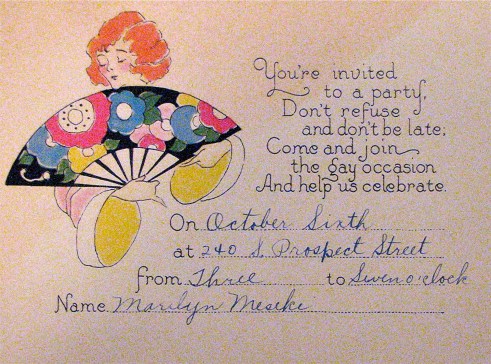 You're invited
to a party,
Don't refuse
and don't be late;
Come and join
the gay occasion
And help us celebrate.
On October Sixth
at 240 S. Prospect Street
from Three to Seven o'clock
Name Marilyn Meseke